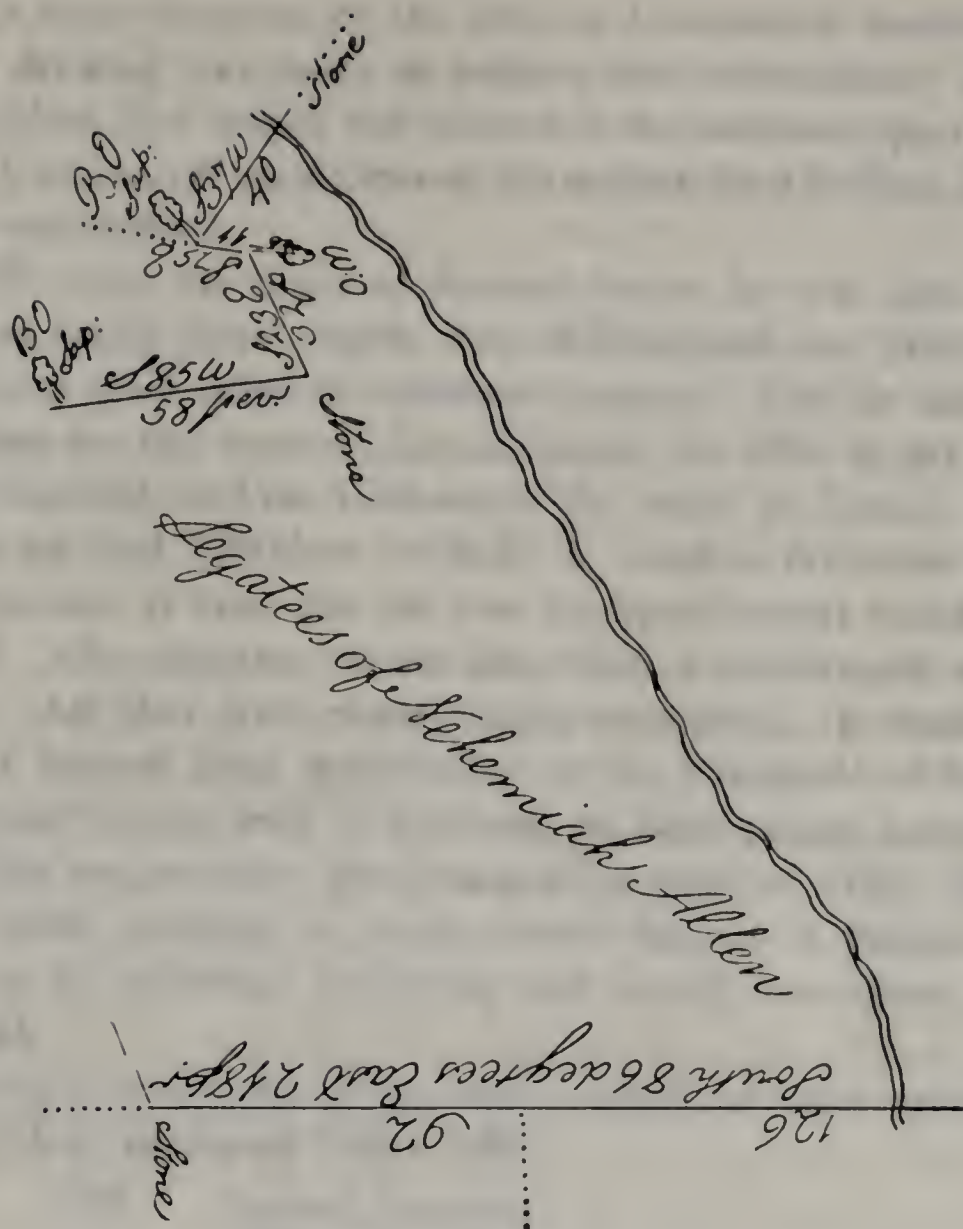 Stone
B.O
Sap:
S37W
40
S75E
11
W.O
S23E
34
BO
Sap:
S85W
58 per.
Stone
Legatees of Nehemiah Allen
South 86 degrees East 218 pr.
92
126
Stone